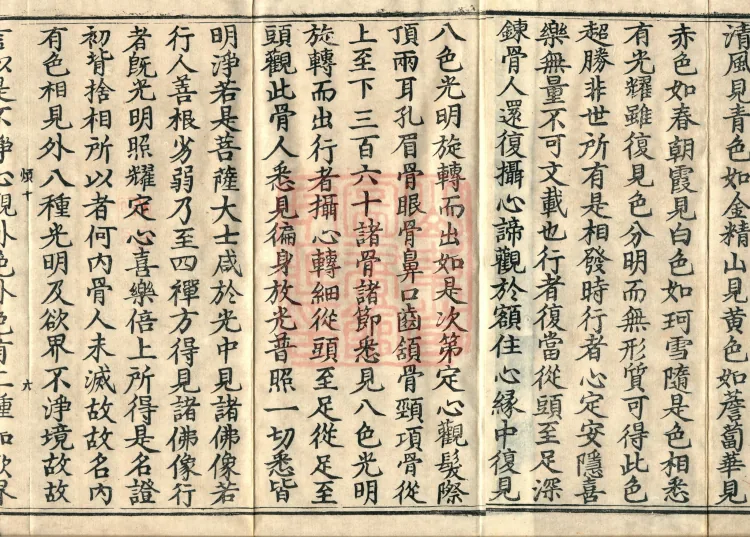 清風見青色如金精山見黃色如薝蔔華見
赤色如春朝霞見白色如珂雪隨是色相悉
有光耀雖復見色分明而無形質可得此色
超勝非世所有是相發時行者心定安隱喜
樂無量不可文載也行者復當從頭至足深
鍊骨人還復攝心諦觀於額住心緣中復見
八色光明旋轉而出如是次第定心觀髮際
頂兩耳孔眉骨眼骨鼻口齒頷骨頸項骨從
上至下三百六十諸骨諸節悉見八色光明
旋轉而出行者攝心轉細從頭至足從足至
頭觀此骨人悉見徧身放光普照一切悉皆
明淨若是菩薩大士咸於光中見諸佛像若
行人善根劣弱乃至四禪方得見諸佛像行
者既光明照耀定心喜樂倍上所得是名證
初背捨相所以者何內骨人未滅故故名內
有色相見外八種光明及欲界不淨境故故
煩十 六
言以是不淨心觀外色外色有二種如欲界